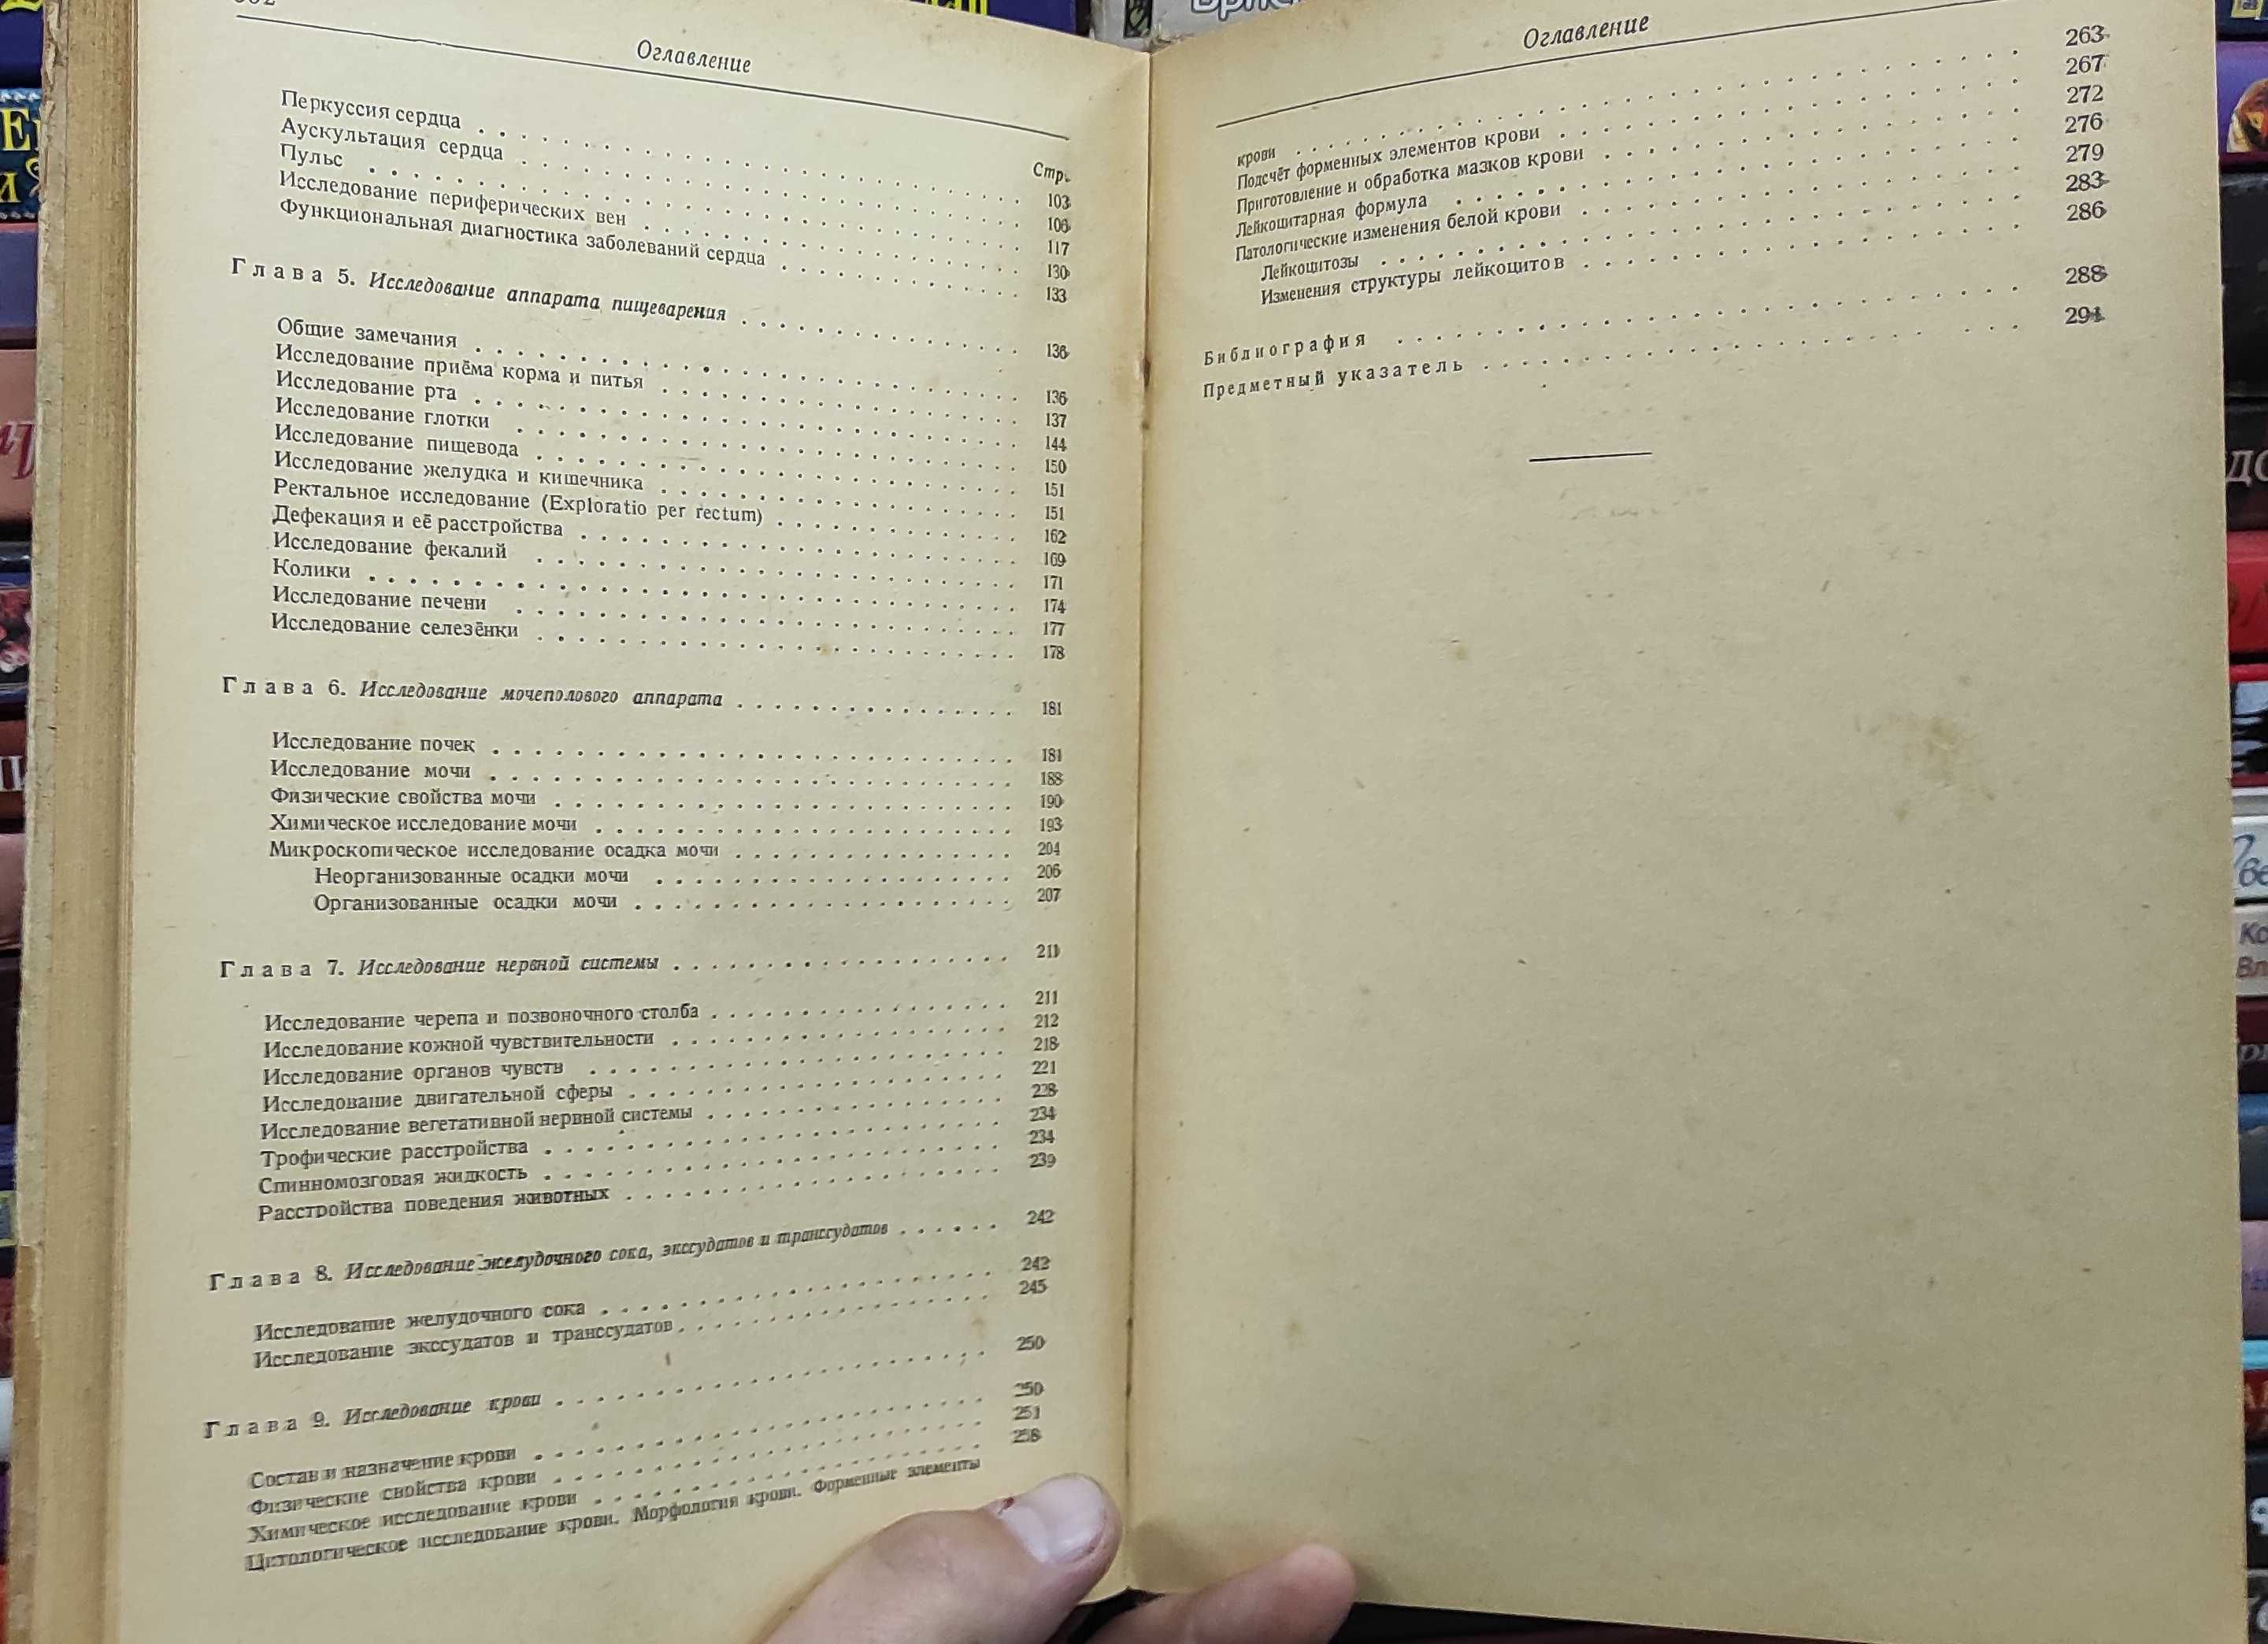 Оглавление
Стр.
Перкуссия сердца . . . 103
Аускультация сердца . . . 106
Пульс . . . 117
Исследование периферических вен . . . 130
Функциональная диагностика заболеваний сердца . . . 133
Глава 5. Исследование аппарата пищеварения . . . 136
Общие замечания . . . 136
Исследование приёма корма и питья . . . 137
Исследование рта . . . 144
Исследование глотки . . . 150
Исследование пищевода . . . 151
Исследование желудка и кишечника . . . 151
Ректальное исследование (Exploratio per rectum) . . . 162
Дефекация и её расстройства . . . 169
Исследование фекалий . . . 171
Колики . . . 174
Исследование печени . . . 177
Исследование селезёнки . . . 178
Глава 6. Исследование мочеполового аппарата . . . 181
Исследование почек . . . 181
Исследование мочи . . . 188
Физические свойства мочи . . . 190
Химическое исследование мочи . . . 193
Микроскопическое исследование осадка мочи . . . 204
Неорганизованные осадки мочи . . . 206
Организованные осадки мочи . . . 207
Глава 7. Исследование нервной системы . . . 211
Исследование черепа и позвоночного столба . . . 211
Исследование кожной чувствительности . . . 212
Исследование органов чувств . . . 218
Исследование двигательной сферы . . . 221
Исследование вегетативной нервной системы . . . 228
Трофические расстройства . . . 234
Спинномозговая жидкость . . . 234
Расстройства поведения животных . . . 239
Глава 8. Исследование желудочного сока, экссудатов и транссудатов . . . 242
Исследование желудочного сока . . . 242
Исследование экссудатов и транссудатов . . . 245
Глава 9. Исследование крови . . . 250
Состав и назначение крови . . . 250
Физические свойства крови . . . 251
Химическое исследование крови . . . 258
Цитологическое исследование крови. Морфология крови. Форменные элементы
Оглавление
крови . . . 263
Подсчёт форменных элементов крови . . . 267
Приготовление и обработка мазков крови . . . 272
Лейкоцитарная формула . . . 276
Патологические изменения белой крови . . . 279
Лейкоцитозы . . . 283
Изменения структуры лейкоцитов . . . 286
Библиография . . . 288
Предметный указатель . . . 291